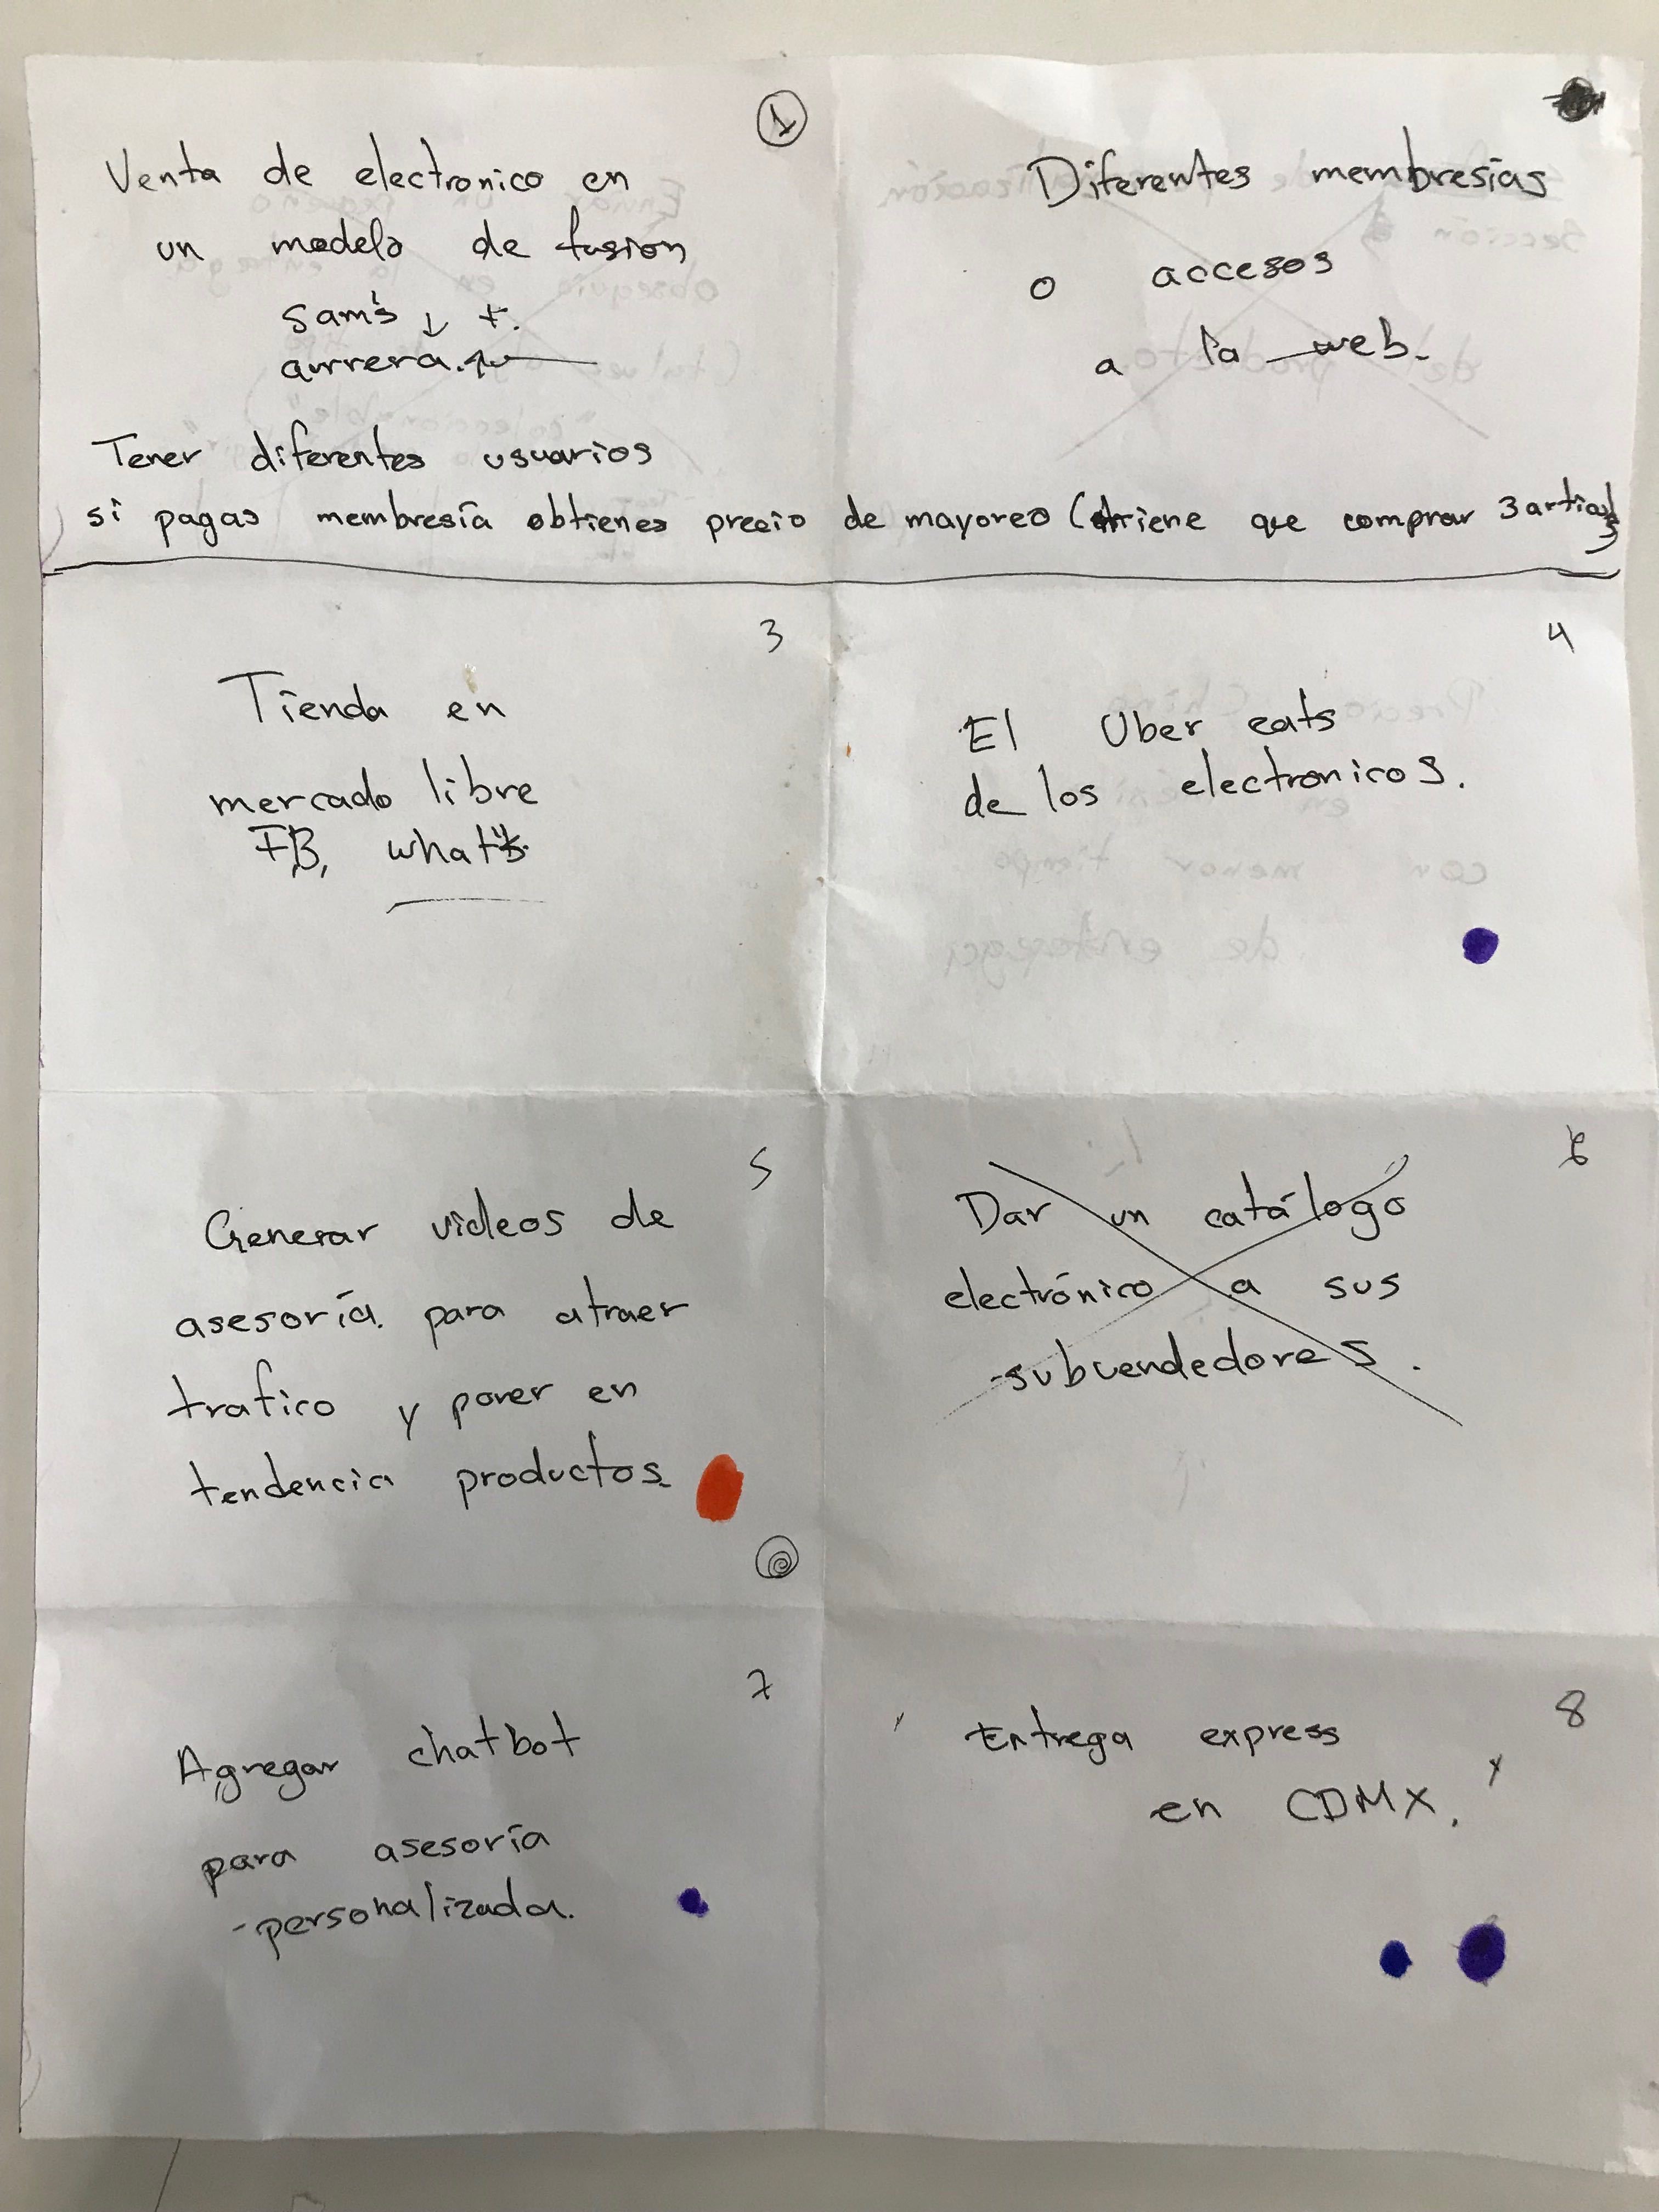 1
Venta de electronico en
un modelo de fusion
Sam's ↓ +.
aurrera.
Diferentes membresías
o accesos
a la web.
Tener diferentes usuarios
si pagas membresía obtienes precio de mayoreo (tiene que comprar 3
3
Tienda en
mercado libre
FB, what's.
4
El Uber eats
de los electronicos.
5
Generar videos de
asesoría. para atraer
trafico y poner en
tendencia productos.
6
Dar un catálogo
electrónico a sus
subvendedores.
7
Agregar chatbot
para asesoría
-personalizada.
8
Entrega express
en CDMX.